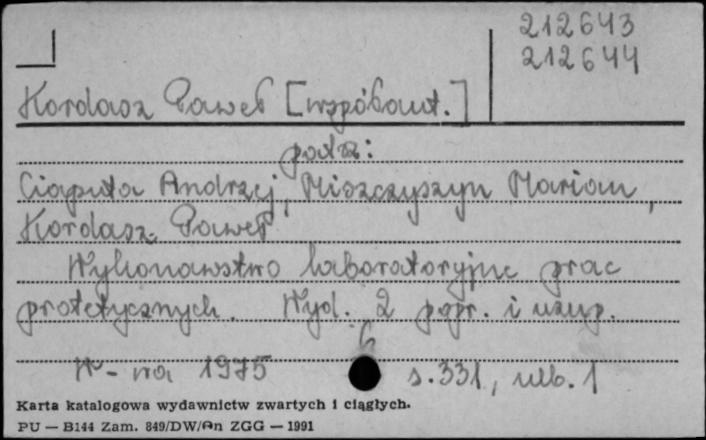 212643
212644
Kordasz Paweł [współaut.]
patrz:
Ciaputa Andrzej, Miszczyszyn Marian,
Kordasz Paweł
Wykonawstwo laboratoryjne prac
protetycznych. Wyd. 2 popr. i uzup.
W-wa 1975 s.331, nlb. 1
Karta katalogowa wydawnictw zwartych i ciągłych.
PU — B144 Zam. 849/DW/An ZGG — 1991